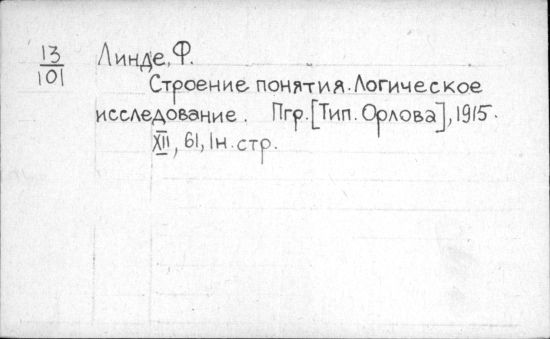 13 Линде, Ф.
101 Строение понятия. Логическое
исследование. Пгр. [Тип. Орлова], 1915.
XII, 61, 1н. стр.